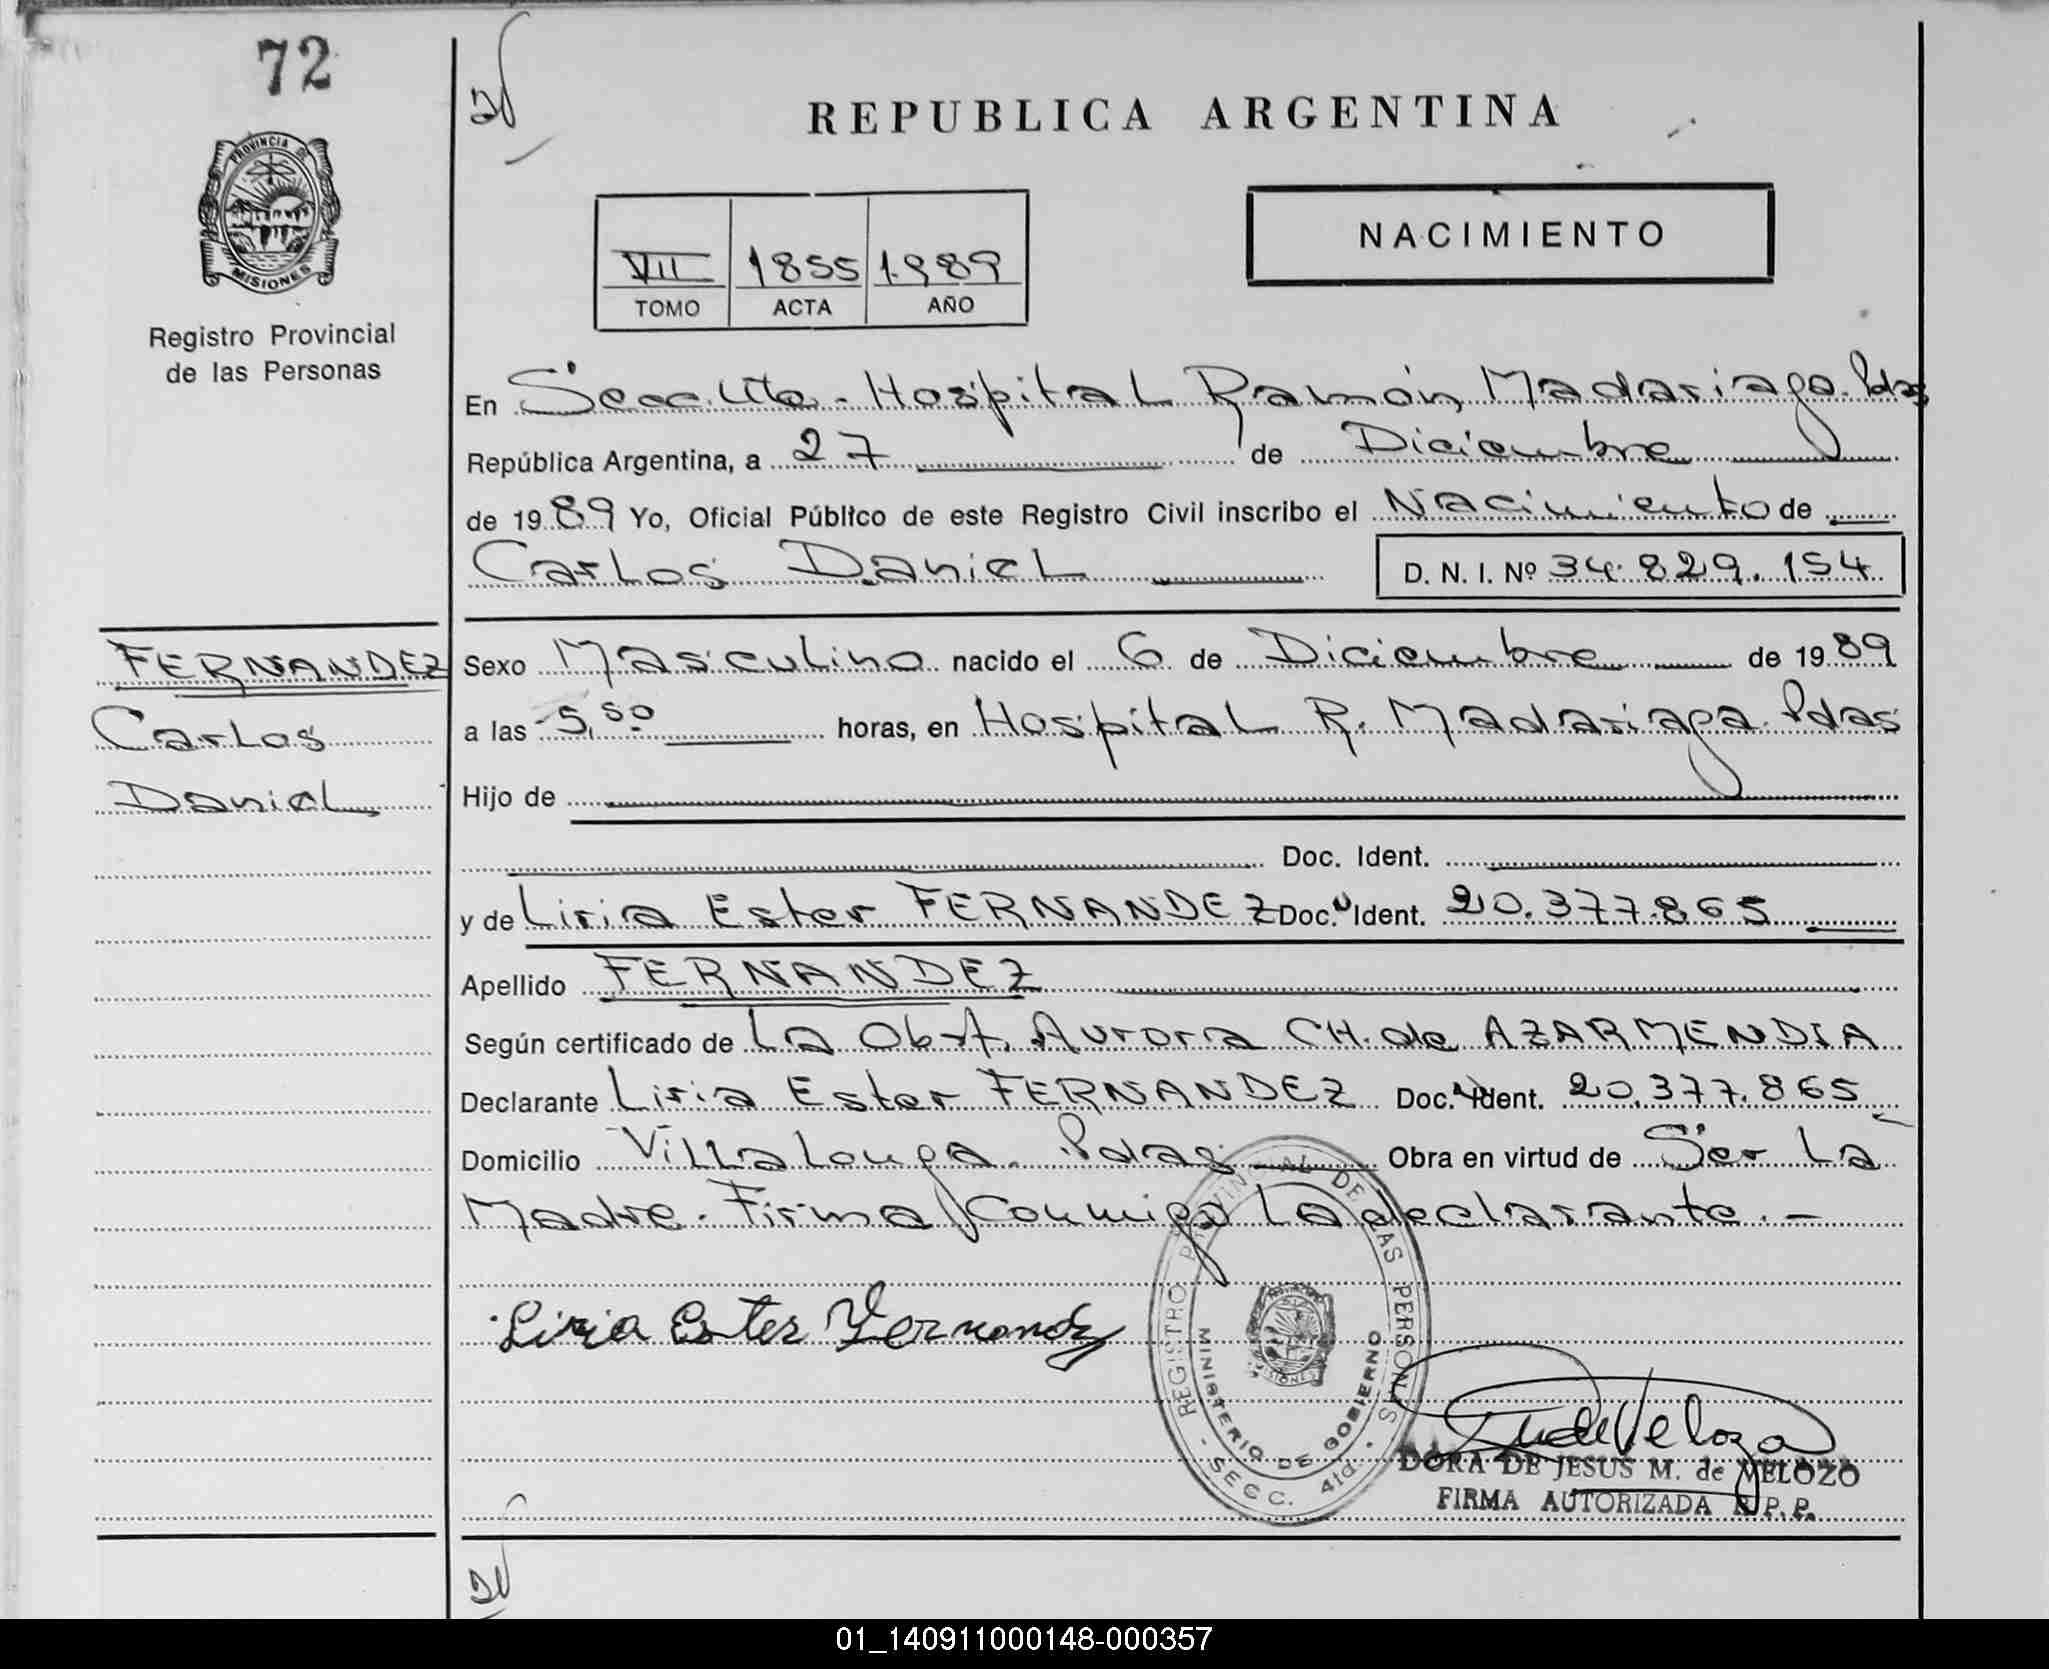 72
PROVINCIA DE
MISIONES
Registro Provincial
de las Personas
REPUBLICA ARGENTINA
NACIMIENTO
VII 1855 1.989
TOMO ACTA AÑO
En Secc. 4ta - Hospital Ramón Madariaga. Pdas
República Argentina, a 27 de Diciembre
de 1989 Yo, Oficial Público de este Registro Civil inscribo el Nacimiento de
Carlos Daniel D. N. I. Nº 34.829.154
FERNANDEZ
Carlos
Daniel
Sexo Masculino nacido el 6 de Diciembre de 1989
a las 5,50 horas, en Hospital R. Madariaga. Pdas
Hijo de
Doc. Ident.
y de Liria Ester FERNANDEZ Doc. Ident. 20.377.865
Apellido FERNANDEZ
Según certificado de La Obst. Aurora CH. de AZARMENDIA
Declarante Liria Ester FERNANDEZ Doc. Ident. 20.377.865
Domicilio Villalonga. Pdas Obra en virtud de Ser La
Madre. Firma Conmigo La declarante. -
Liria Ester Fernandez
REGISTRO PROVINCIAL DE LAS PERSONAS
MINISTERIO DE GOBIERNO
MISIONES
- SECC. 4ta. -
de Velozo
DORA DE JESUS M. de VELOZO
FIRMA AUTORIZADA R.P.P.
01_140911000148-000357